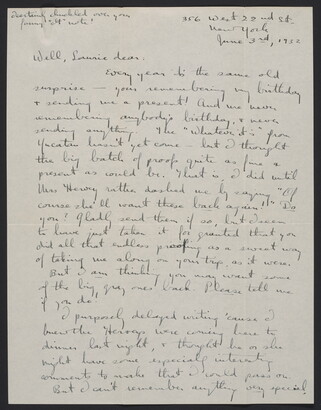 Doasting chuckled over your
funny "ET" note!
356 West 22nd St.
New York
June 3rd, 1932
Well, Laurie dear:
Every year it's the same old
surprise — your remembering my birthday
& sending me a present! And me never
remembering anybody's birthday, & never
sending anything. The "whatever it is" from
Yucatan hasn't yet come — but I thought
the big batch of proofs quite as fine a
present as could be. That is, I did until
Mrs Hervey rather dashed me by saying "Of
course she'll want these back again!" Do
you? Gladly send them if so, but I seem
to have just taken it for granted that you
did all that endless proofing as a sweet way
of taking me along on your trip, as it were.
But I am thinking you may want some
of the big gray ones back. Please tell me
if you do.
I purposely delayed writing 'cause I
knew the Herveys were coming here to
dinner last night, & thought he or she
might have some especially interesting
comments to make that I could pass on.
But I can't remember anything very special